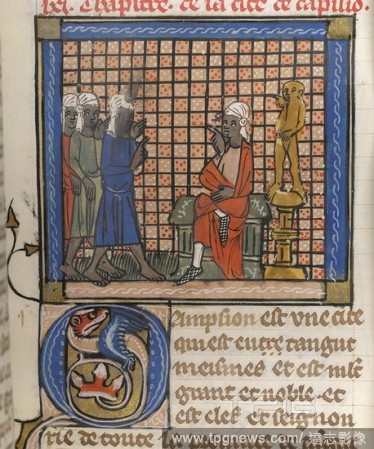 Chapitre. de la cite de
Campsion est vne cite
qui est entre tangut
meismes et est mlt
grant et noble. et
est chief et seignou
rie de toute la
www.tpgnews.com | 達志影像